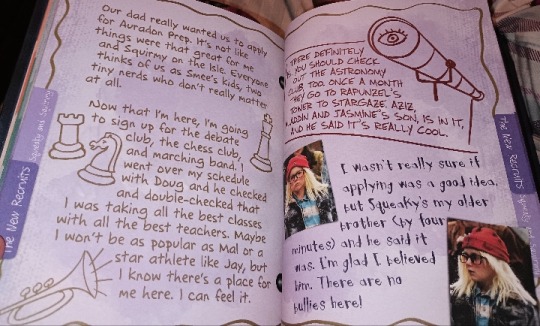 Our dad really wanted us to apply
for Auradon Prep. It's not like
things were that great for me
and Squirmy on the Isle. Everyone
thinks of us as Smee's kids, two
tiny nerds who don't really matter
at all.
Now that I'm here, I'm going
to sign up for the debate
club, the chess club,
and marching band. I
went over my schedule
with Doug and he checked
and double-checked that
I was taking all the best classes
with all the best teachers. Maybe
I won't be as popular as Mal or a
star athlete like Jay, but
I know there's a place for
me here. I can feel it.
The New Recruits Squeaky and Squirmy
THERE DEFINITELY
YOU SHOULD CHECK
OUT THE ASTRONOMY
CLUB, TOO. ONCE A MONTH
THEY GO TO RAPUNZEL'S
TOWER TO STARGAZE. AZIZ,
ALADDIN AND JASMINE'S SON, IS IN IT,
AND HE SAID IT'S REALLY COOL.
I wasn't really sure if
applying was a good idea,
but Squeaky's my older
brother (by four
minutes) and he said it
was. I'm glad I believed
him. There are no
bullies here!
The New Recruits Squeaky and Squirmy